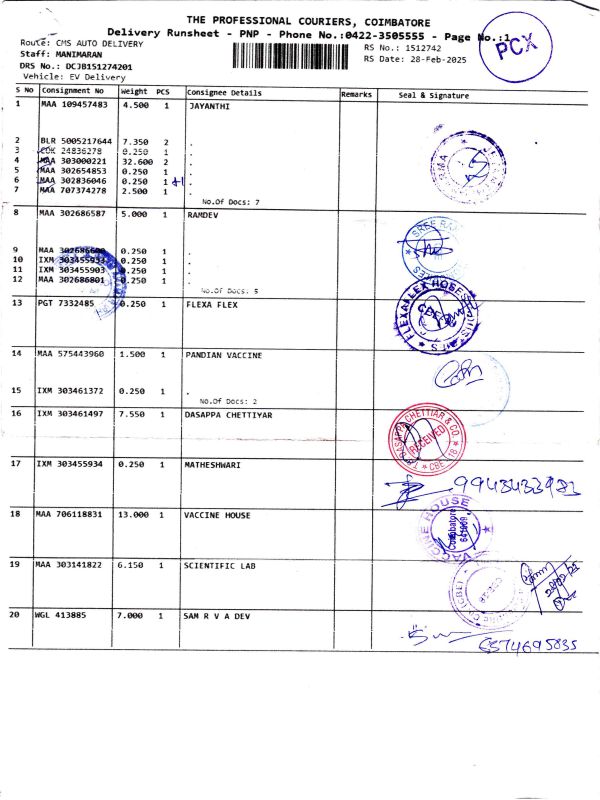 THE PROFESSIONAL COURIERS, COIMBATORE
Delivery Runsheet - PNP - Phone No.:0422-3505555 - Page No.:1
PCX
Route: CMS AUTO DELIVERY
RS No.: 1512742
Staff: MANIMARAN
RS Date: 28-Feb-2025
DRS No.: DCJB151274201
Vehicle: EV Delivery
S No Consignment No Weight PCS Consignee Details Remarks Seal & Signature
1 MAA 109457483 4.500 1 JAYANTHI
2 BLR 5005217644 7.350 2 .
3 COK 24836278 0.250 1 .
4 MAA 303000221 32.600 2 .
5 MAA 302654853 0.250 1 .
6 MAA 302836046 0.250 1 +1 .
7 MAA 707374278 2.500 1 .
No.Of Docs: 7
8 MAA 302686587 5.000 1 RAMDEV
SREE
9 MAA 302686600 0.250 1 .
10 IXM 303455933 0.250 1 .
11 IXM 303455903 0.250 1 .
12 MAA 302686801 0.250 1 .
No.Of Docs: 5
13 PGT 7332485 0.250 1 FLEXA FLEX
14 MAA 575443960 1.500 1 PANDIAN VACCINE
15 IXM 303461372 0.250 1 .
No.Of Docs: 2
16 IXM 303461497 7.550 1 DASAPPA CHETTIYAR
DASAPPA CHETTIAR & CO.
RECEIVED
17 IXM 303455934 0.250 1 MATHESHWARI
9943433983
18 MAA 706118831 13.000 1 VACCINE HOUSE
VACCINE HOUSE
Coimbatore
19 MAA 303141822 6.150 1 SCIENTIFIC LAB
20 WGL 413885 7.000 1 SAM R V A DEV